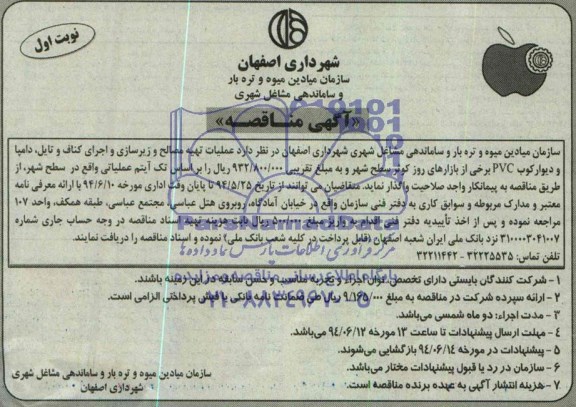 نوبت اول
شهرداری اصفهان
سازمان میادین میوه و تره بار
و ساماندهی مشاغل شهری
«آگهی مناقصه»
سازمان میادین میوه و تره بار و ساماندهی مشاغل شهری شهرداری اصفهان در نظر دارد عملیات تهیه مصالح و زیرسازی و اجرای کناف و تایل، دامپا
و دیوارکوب PVC برخی از بازارهای روز کوثر سطح شهر و به مبلغ تقریبی ۹۳۲/۸۰۰/۰۰۰ ریال را بر اساس تک آیتم عملیاتی واقع در سطح شهر، از
طریق مناقصه به پیمانکار واجد صلاحیت واگذار نماید. متقاضیان می توانند از تاریخ ۹۴/۵/۲۵ تا پایان وقت اداری مورخه ۹۴/۶/۱۰ با ارائه معرفی نامه
معتبر و مدارک مربوطه و سوابق کاری به دفتر فنی سازمان واقع در خیابان آمادگاه، روبروی هتل عباسی، مجتمع عباسی، طبقه همکف، واحد ۱۰۷
مراجعه نموده و پس از اخذ تأییدیه دفتر فنی اقدام به واریز مبلغ ۵۰۰/۰۰۰ ریال بابت هزینه تهیه اسناد مناقصه در وجه حساب جاری شماره
۳۱۰۰۰۰۳۰۴۱۰۰۷ نزد بانک ملی ایران شعبه اصفهان (قابل پرداخت در کلیه شعب بانک ملی) نموده و اسناد مناقصه را دریافت نمایند.
تلفن تماس: ۳۲۲۲۵۵۳۵ - ۳۲۲۱۱۴۴۲
۱ - شرکت کنندگان بایستی دارای تخصص، توان اجراء و تجربه مناسب و حسن سابقه در این زمینه باشند.
۲ - ارائه سپرده شرکت در مناقصه به مبلغ ۹/۱۶۵/۰۰۰ ریال طی ضمانت نامه بانکی یا فیش پرداختی الزامی است.
۳ - مدت اجراء: دو ماه شمسی می‌باشد.
۴ - مهلت ارسال پیشنهادات تا ساعت ۱۳ مورخه ۹۴/۰۶/۱۲ می‌باشد.
۵ - پیشنهادات در مورخه ۹۴/۰۶/۱۴ بازگشایی می‌شوند.
۶ - سازمان در رد یا قبول پیشنهادات مختار می‌باشد.
۷ - هزینه انتشار آگهی به عهده برنده مناقصه است.
سازمان میادین میوه و تره بار و ساماندهی مشاغل شهری
شهرداری اصفهان
ParsNamadData
مرکز فرآوری اطلاعات پارس نماد داده ها
پایگاه اطلاع رسانی مناقصه و مزایده
۰۲۱-۸۸۳۴۹۶۷۰-۵